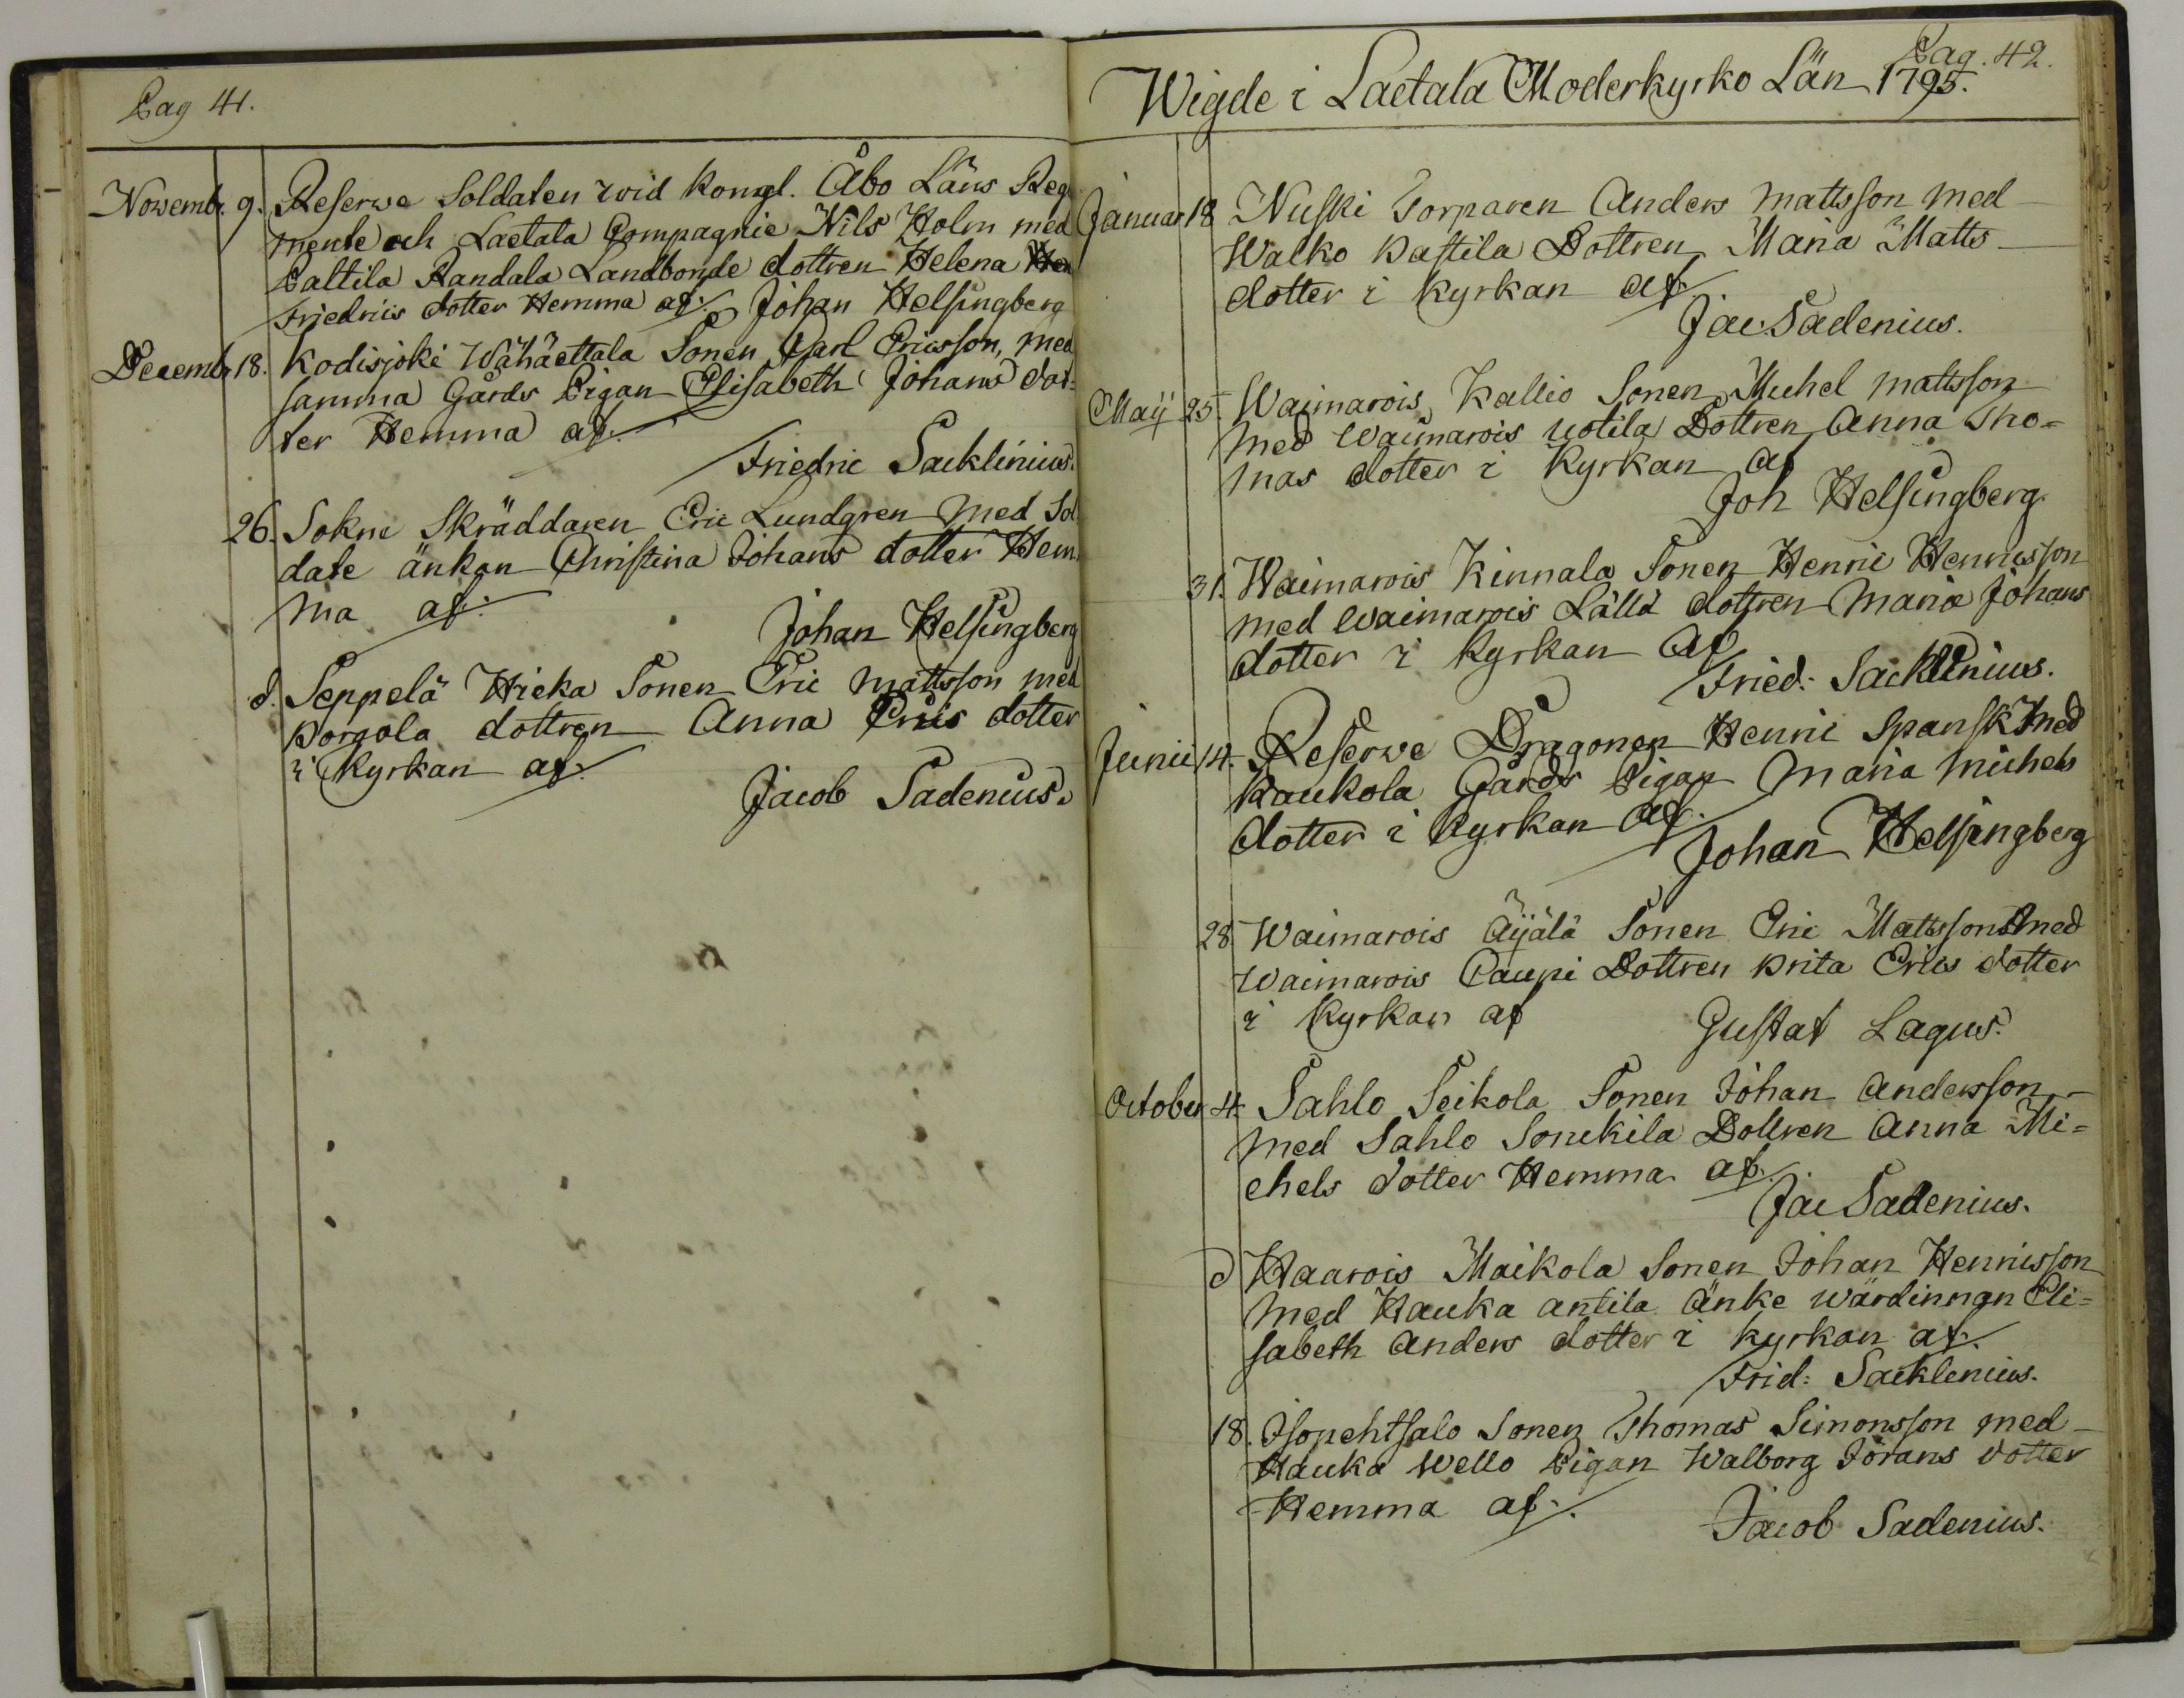 Pag 41.
Novemb. 9. Reserwe Soldaten wid Kongl. Åbo Läns Reg
mente och Laetala Compagnie Nils Holm med
Caltila Randala Landbonde dottren Helena
Friedrics dotter Hemma af. Johan Helsingberg
Decemb 18. Kodisjoki Wähäettala Sonen Carl Ericsson, med
samma Gårds Pigan Elisabeth Johans dot-
ter Hemma af.
Friedric Sacklinius.
26. Sokne Skräddaren Eric Lundgren med Sol
date änkan Christina Johans dotter Hem
ma af.
Johan Helsingberg
d. Seppelä Hieka Sonen Eric Mattsson med
Porgola dottren Anna Erics dotter
i Kyrkan af.
Jacob Sadenius.
Pag. 42.
Wigde i Laetala Moderkyrko Län 1795.
Januar 18 Nuski Torparen Anders Mattsson med
Walko Kastila Dottren Maria Matts
dotter i Kyrkan af
Jac. Sadenius.
Maij 25. Waimarois Kallio Sonen Michel Mattsson
med Waimarois Uotila Dottren Anna Tho=
mas dotter i Kyrkan af
Joh Helsingberg.
31. Waimarois Kinnala Sonen Henric Henricsson
med Waimarois Lällä dottren Maria Johans
dotter i Kyrkan af
Fried: Sacklenius.
Junii 14. Reserwe Dragonen Henric Spansk med
Kaukola Gårds Pigan Maria Michels
dotter i Kyrkan af.
Johan Helsingberg
28 Waimarois Äijälä Sonen Eric Mattsson med
Waimarois Caupi Dottren Brita Erics dotter
i Kyrkan af
Gustaf Lagus.
October 4. Sahlo Seikola Sonen Johan Andersson
med Sahlo Sonckila Dottren Anna Mi=
chels dotter Hemma af.
Jac Sadenius.
d Haarois Maikola Sonen Johan Henricsson
med Hauka Antila Änke Wärdinnan Eli=
sabeth Anders dotter i Kyrkan af.
Frid: Sacklenius.
18. Isonehtsalo Sonen Thomas Simonsson med
Hauka Wello Pigan Walborg Jörans dotter
Hemma af.
Jacob Sadenius.